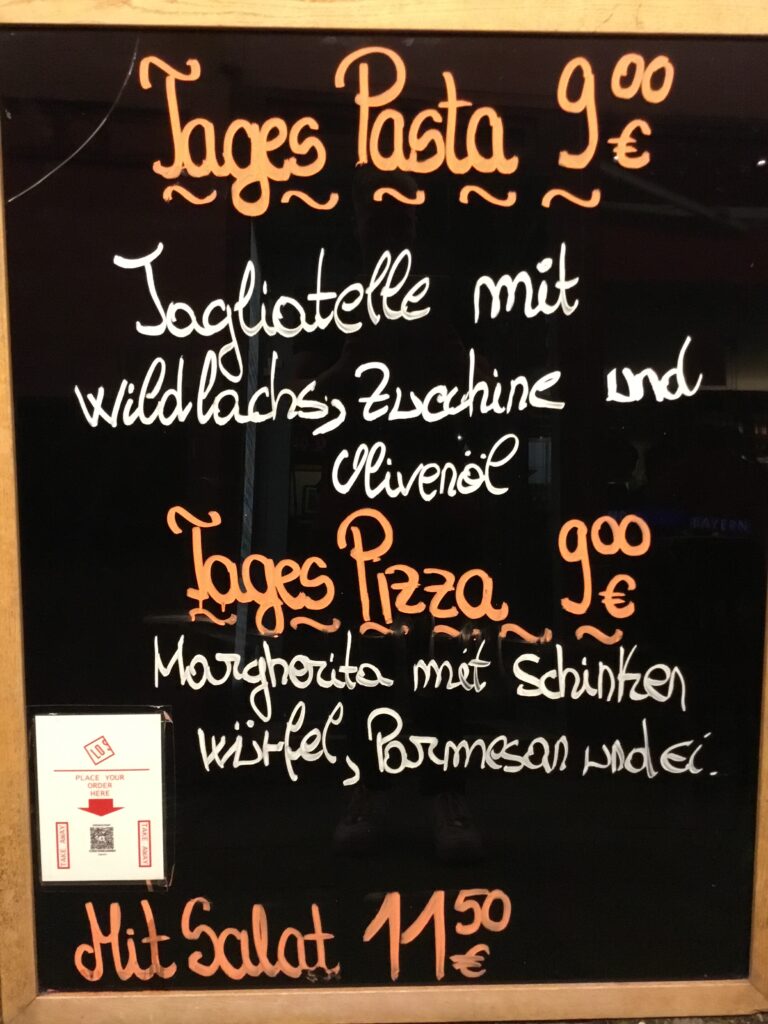 Tages Pasta 9 00 €
Tagliatelle mit
Wildlachs, Zucchine und
Olivenöl
BAYERN
Tages Pizza 9 00 €
Margherita mit Schinken
würfel, Parmesan und ei.
LOS
PLACE YOUR
ORDER
HERE
TAKE AWAY
TAKE AWAY
Mit Salat 11 50 €